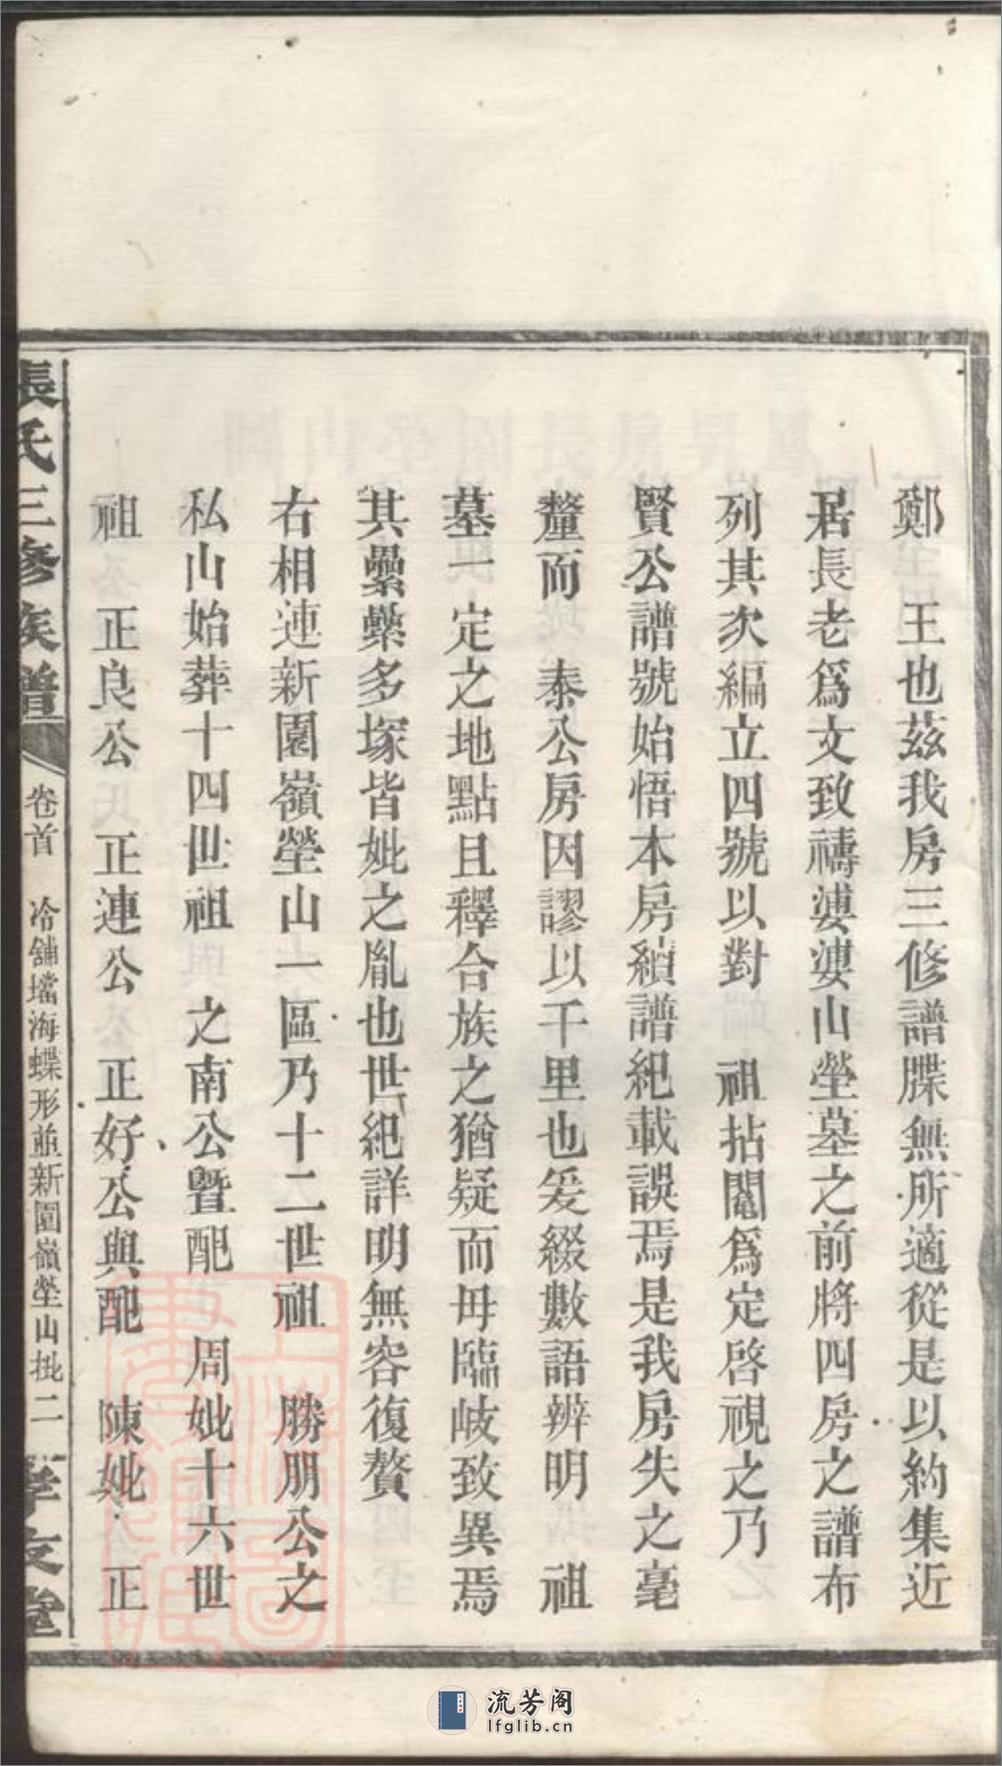 鄭　王也茲我房三修譜牒無所適從是以約集近
居長老爲文致禱婆婆山塋墓之前將四房之譜布
列其次編立四號以對　祖拈鬮爲定啓視之乃
賢公譜號始悟本房續譜紀載誤焉是我房失之毫
釐而　泰公房因謬以千里也爰綴數語辨明　祖
墓一定之地點且釋合族之猶疑而毋臨岐致異焉
其纍纍多塚皆妣之胤也世紀詳明無容復贅
右相連新園嶺塋山一區乃十二世祖　勝朋公之
私山始葬十四世祖　之南公暨配　周妣十六世
祖　正良公　正連公　正好公與配　陳妣　正
張氏三修族譜　卷首　冷舖壋海蝶形並新園嶺塋山批　二　孝友堂
流芳阁
lfglib.cn